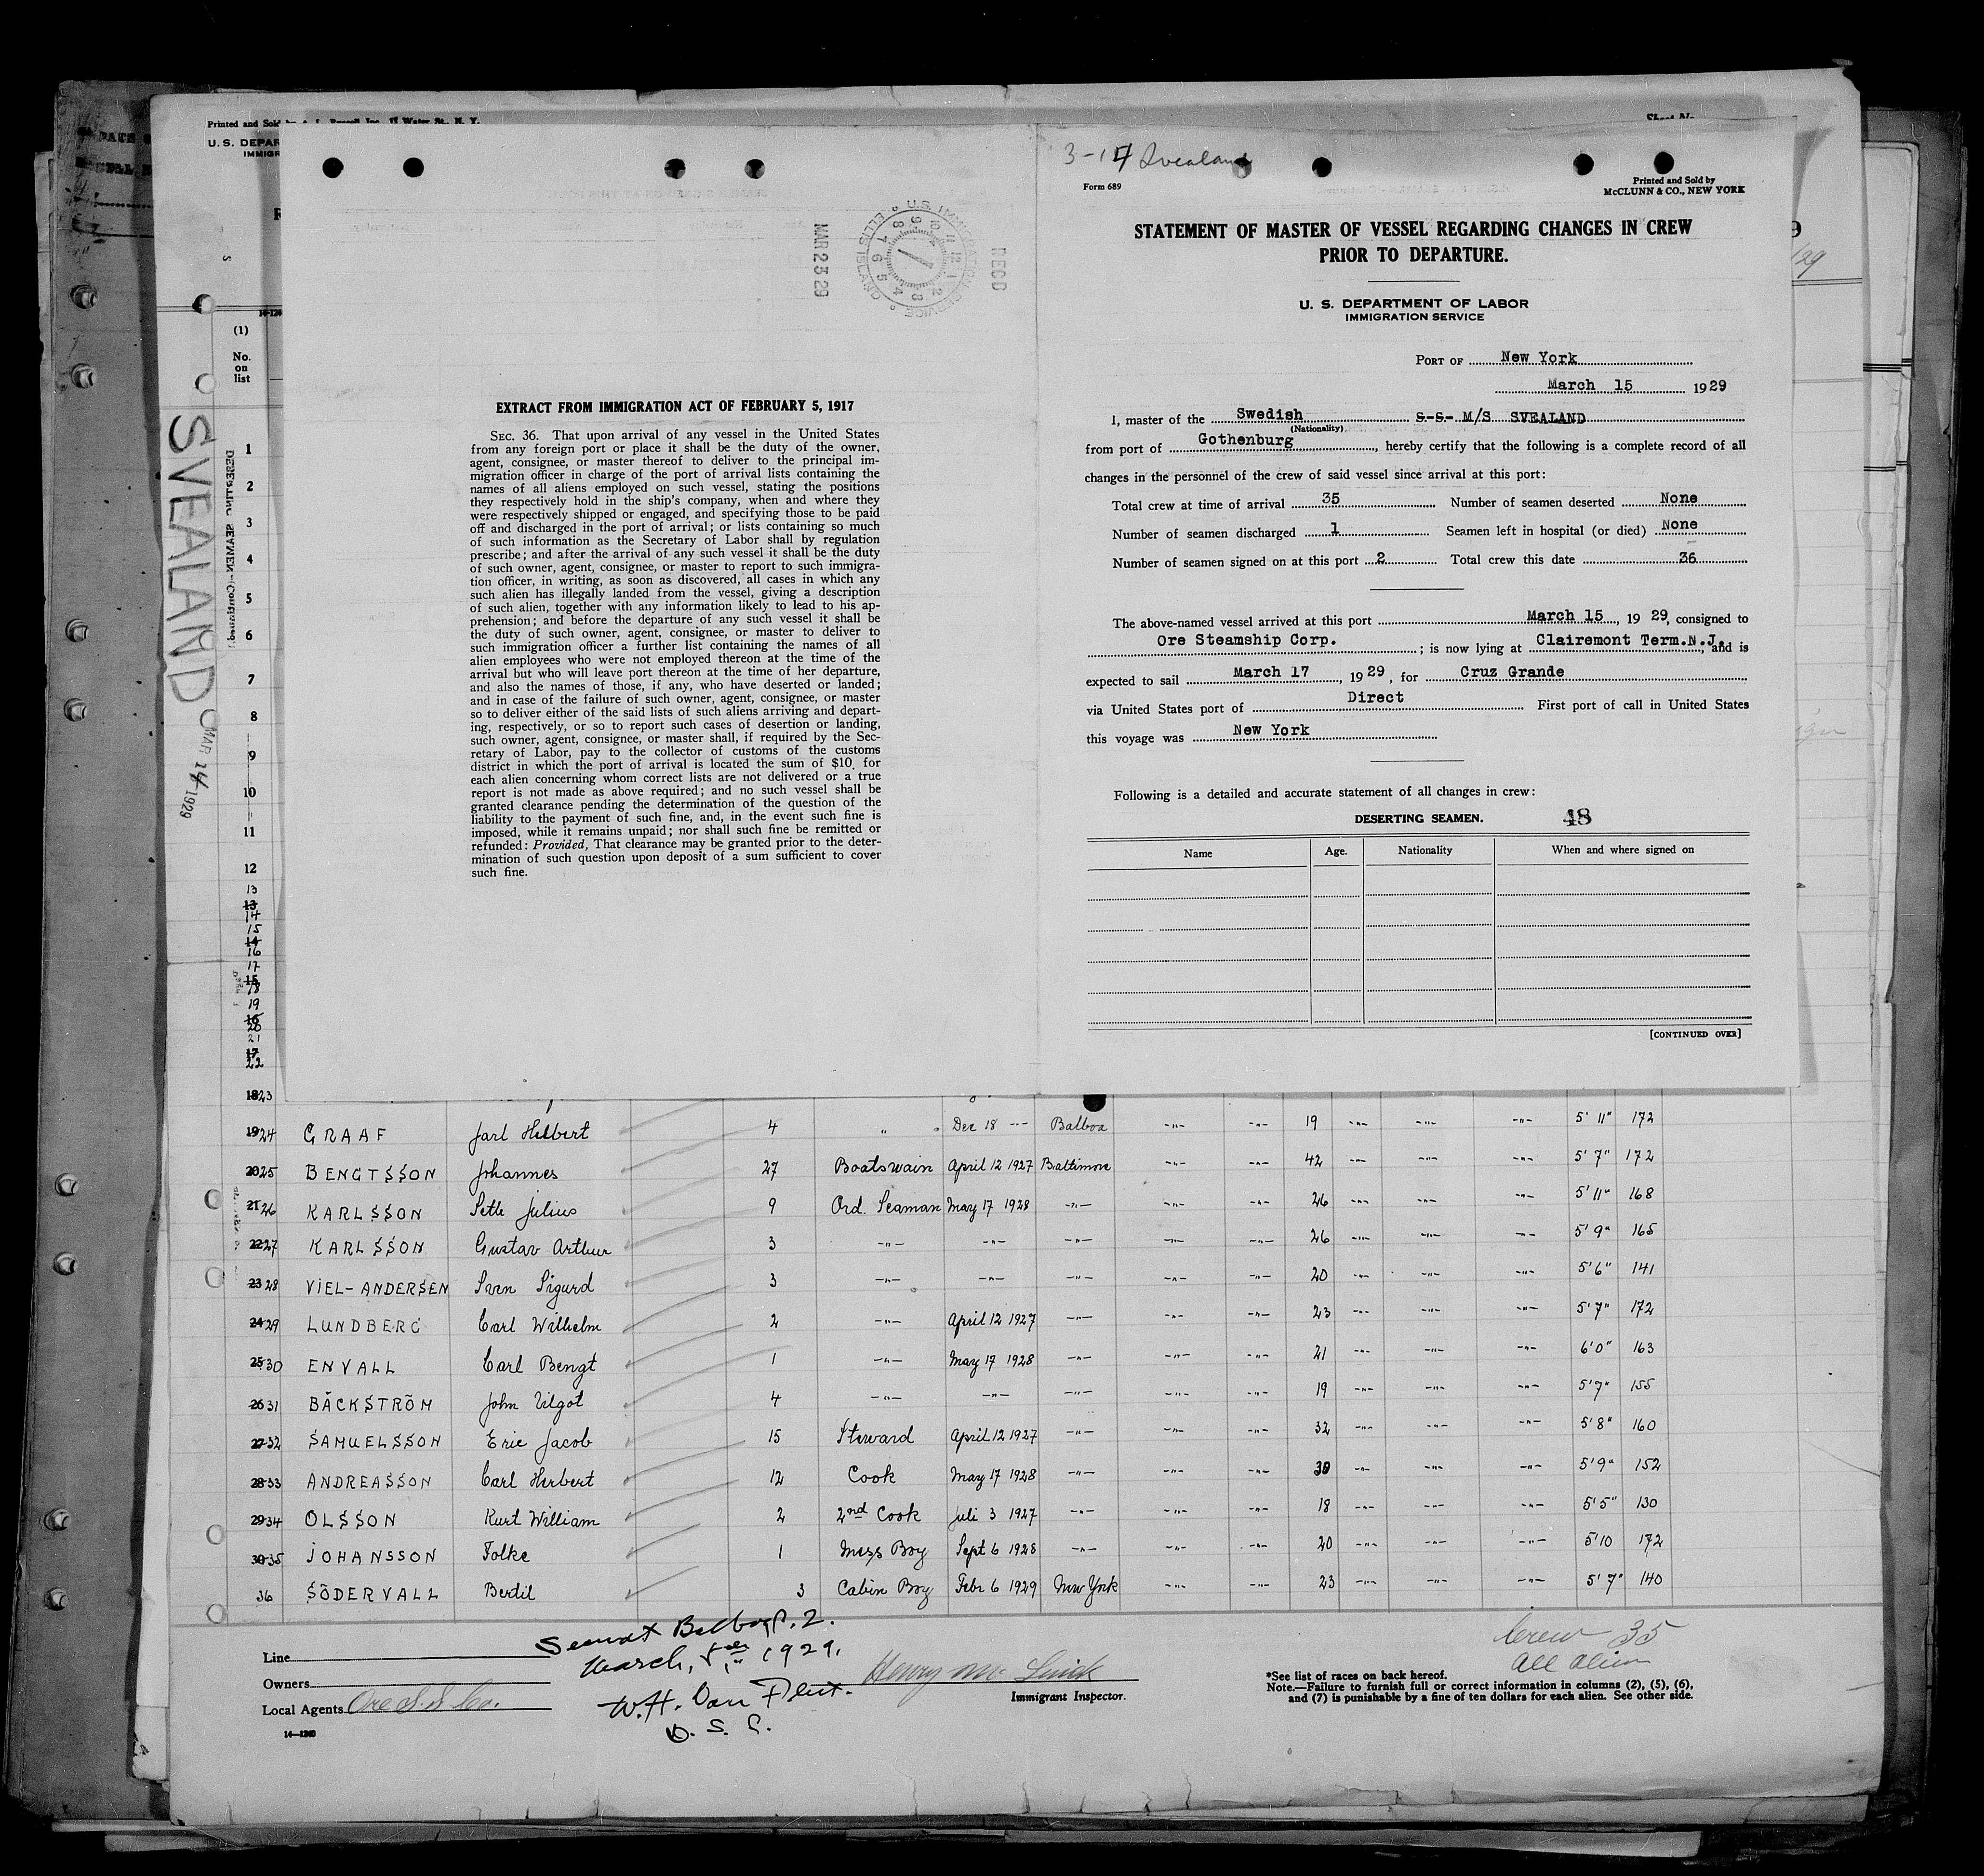 Printed and Sold by A. L. Russell Inc. 17 Water St., N. Y.
U. S. DEPAR
IMMIGR
(1)
No.
on
list
SVEALAND
MAR 14 1929
DESERTING SEAMEN—(Continued)
1
2
3
4
5
6
7
8
9
10
11
12
13
13
14
15
14
16
17
15
18
19
16
20
21
17
22
MAR 25 29
REC'D
U.S. IMMIGRATION SERVICE
ELLIS ISLAND
EXTRACT FROM IMMIGRATION ACT OF FEBRUARY 5, 1917
SEC. 36. That upon arrival of any vessel in the United States
from any foreign port or place it shall be the duty of the owner,
agent, consignee, or master thereof to deliver to the principal im-
migration officer in charge of the port of arrival lists containing the
names of all aliens employed on such vessel, stating the positions
they respectively hold in the ship's company, when and where they
were respectively shipped or engaged, and specifying those to be paid
off and discharged in the port of arrival; or lists containing so much
of such information as the Secretary of Labor shall by regulation
prescribe; and after the arrival of any such vessel it shall be the duty
of such owner, agent, consignee, or master to report to such immigra-
tion officer, in writing, as soon as discovered, all cases in which any
such alien has illegally landed from the vessel, giving a description
of such alien, together with any information likely to lead to his ap-
prehension; and before the departure of any such vessel it shall be
the duty of such owner, agent, consignee, or master to deliver to
such immigration officer a further list containing the names of all
alien employees who were not employed thereon at the time of the
arrival but who will leave port thereon at the time of her departure,
and also the names of those, if any, who have deserted or landed;
and in case of the failure of such owner, agent, consignee, or master
so to deliver either of the said lists of such aliens arriving and depart-
ing, respectively, or so to report such cases of desertion or landing,
such owner, agent, consignee, or master shall, if required by the Sec-
retary of Labor, pay to the collector of customs of the customs
district in which the port of arrival is located the sum of $10 for
each alien concerning whom correct lists are not delivered or a true
report is not made as above required; and no such vessel shall be
granted clearance pending the determination of the question of the
liability to the payment of such fine, and, in the event such fine is
imposed, while it remains unpaid; nor shall such fine be remitted or
refunded: Provided, That clearance may be granted prior to the deter-
mination of such question upon deposit of a sum sufficient to cover
such fine.
3-17 Svealand
Form 689
Printed and Sold by
McCLUNN & CO., NEW YORK
STATEMENT OF MASTER OF VESSEL REGARDING CHANGES IN CREW
PRIOR TO DEPARTURE.
U. S. DEPARTMENT OF LABOR
IMMIGRATION SERVICE
PORT OF New York
March 15 1929
I, master of the Swedish S-S- M/S SVEALAND
(Nationality)
from port of Gothenburg, hereby certify that the following is a complete record of all
changes in the personnel of the crew of said vessel since arrival at this port:
Total crew at time of arrival 35 Number of seamen deserted None
Number of seamen discharged 1 Seamen left in hospital (or died) None
Number of seamen signed on at this port 2 Total crew this date 36
The above-named vessel arrived at this port March 15, 19 29, consigned to
Ore Steamship Corp.; is now lying at Clairemont Term.N.J., and is
expected to sail March 17, 19 29, for Cruz Grande
via United States port of Direct First port of call in United States
this voyage was New York
Following is a detailed and accurate statement of all changes in crew:
DESERTING SEAMEN. 48
Name Age. Nationality When and where signed on
[CONTINUED OVER]
18 23
19 24 GRAAF Jarl Helbert 4 " Dec 18 -- Balboa -"- -"- 19 -"- -"- -"- 5' 11" 172
20 25 BENGTSSON Johannes 27 Boatswain April 12 1927 Baltimore -"- -"- 42 -"- -"- -"- 5' 7" 172
21 26 KARLSSON Setle Julius 9 Ord. Seaman May 17 1928 -"- -"- -"- 26 -"- -"- -"- 5' 11" 168
22 27 KARLSSON Gustav Arthur 3 -"- -"- -"- -"- -"- 26 -"- -"- -"- 5' 9" 165
23 28 VIEL-ANDERSEN Sven Sigurd 3 -"- -"- -"- -"- -"- 20 -"- -"- -"- 5' 6" 141
24 29 LUNDBERG Carl Wilhelm 2 -"- April 12 1927 -"- -"- -"- 23 -"- -"- -"- 5' 7" 172
25 30 ENVALL Carl Bengt 1 -"- May 17 1928 -"- -"- -"- 21 -"- -"- -"- 6' 0" 163
26 31 BÄCKSTRÖM John Vilgot 4 -"- -"- -"- -"- -"- 19 -"- -"- -"- 5' 7" 155
27 32 SAMUELSSON Eric Jacob 15 Steward April 12 1927 -"- -"- -"- 32 -"- -"- -"- 5' 8" 160
28 33 ANDREASSON Carl Herbert 12 Cook May 17 1928 -"- -"- -"- 30 -"- -"- -"- 5' 9" 152
29 34 OLSSON Kurt William 2 2nd Cook Juli 3 1927 -"- -"- -"- 18 -"- -"- -"- 5' 5" 130
30 35 JOHANSSON Folke 1 Mess Boy Sept 6 1928 -"- -"- -"- 20 -"- -"- -"- 5' 10 172
36 SÖDERVALL Bertil 3 Cabin Boy Febr 6 1929 New York -"- -"- 23 -"- -"- -"- 5' 7" 140
Line
Owners
Local Agents Ore S.S. Co.
14—1240
Balboa, C. Z.
March, 5th 1929.
W. H. Van Fleet.
Henry Mc
Immigrant Inspector.
Crew 35
all alien
*See list of races on back hereof.
Note.—Failure to furnish full or correct information in columns (2), (5), (6),
and (7) is punishable by a fine of ten dollars for each alien. See other side.